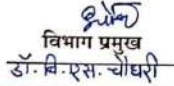 विभाग प्रमुख
डॉ. वि. एस. चौधरी